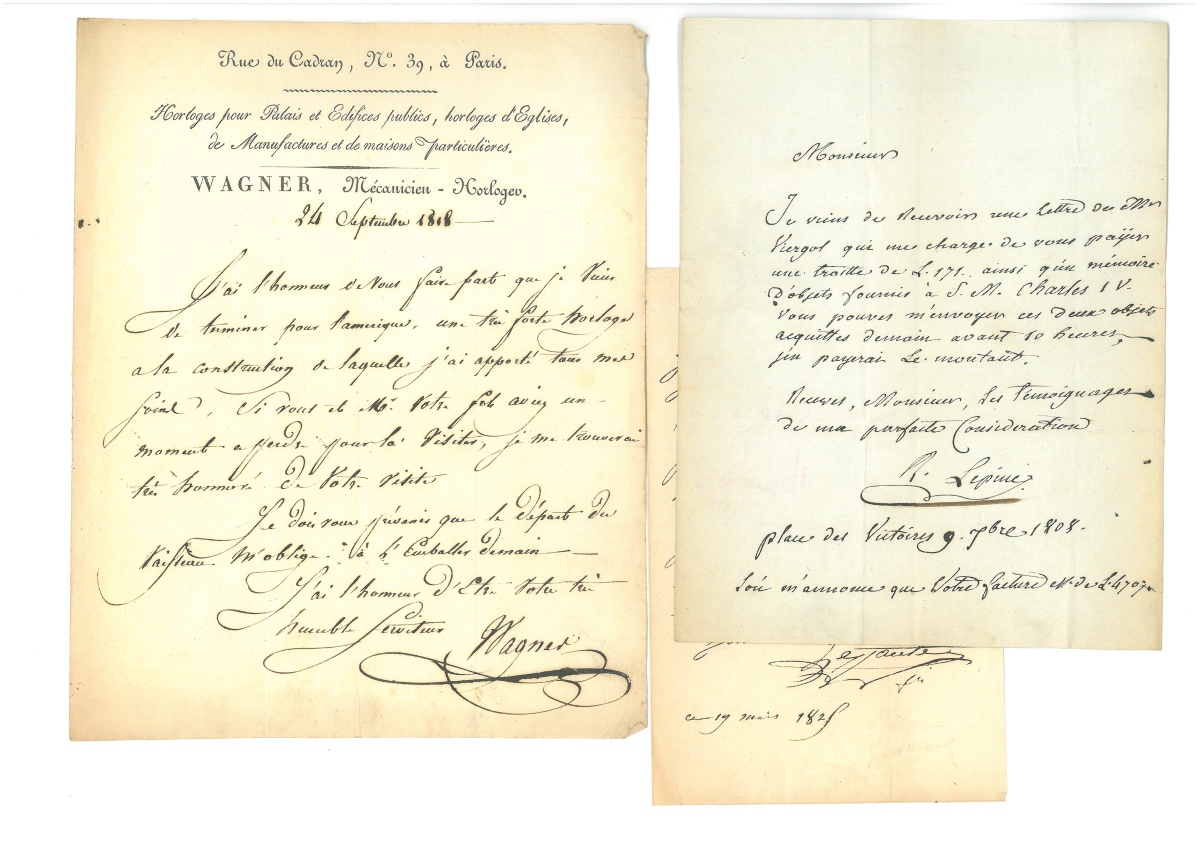 Rue du Cadran, N.º 39, à Paris.
Horloges pour Palais et Edifices publics, horloges d'Eglises,
de Manufactures et de maisons particulières.
WAGNER, Mécanicien - Horloger.
24 Septembre 1818
J'ai l'honneur de Vous faire part que je Viens
de terminer pour l'amerique, une très forte horloge
a la construction de laquelle j'ai apporté tous mes
soins, Si vous et Mr. Votre fils aviez un
moment a perdre pour la Visiter, je me trouverai
très honnoré de Votre visite
Je dois vous prévenir que le départ du
Vaisseau m'oblige à l'Emballer demain
J'ai l'honneur d'Etre Votre très
humble Serviteur
Wagner
Monsieur
Je viens de Recevoir une Lettre de Mr
Viergol qui me charge de vous payer
une traitte de L. 171. ainsi qu'un mémoire
d'objets fournis à S. M. Charles IV.
Vous pouves m'envoyer ces deux objets
acquittes demain avant 10 heures,
j'en payerai Le montant.
Recevez, Monsieur, Les témoignages
de ma parfaite Consideration
Lepine
place des Victoires 9. 7bre 1808.
L'on m'annonce que Votre facture est de L. 4707
Lepaute
fils
ce 19 mars 1825